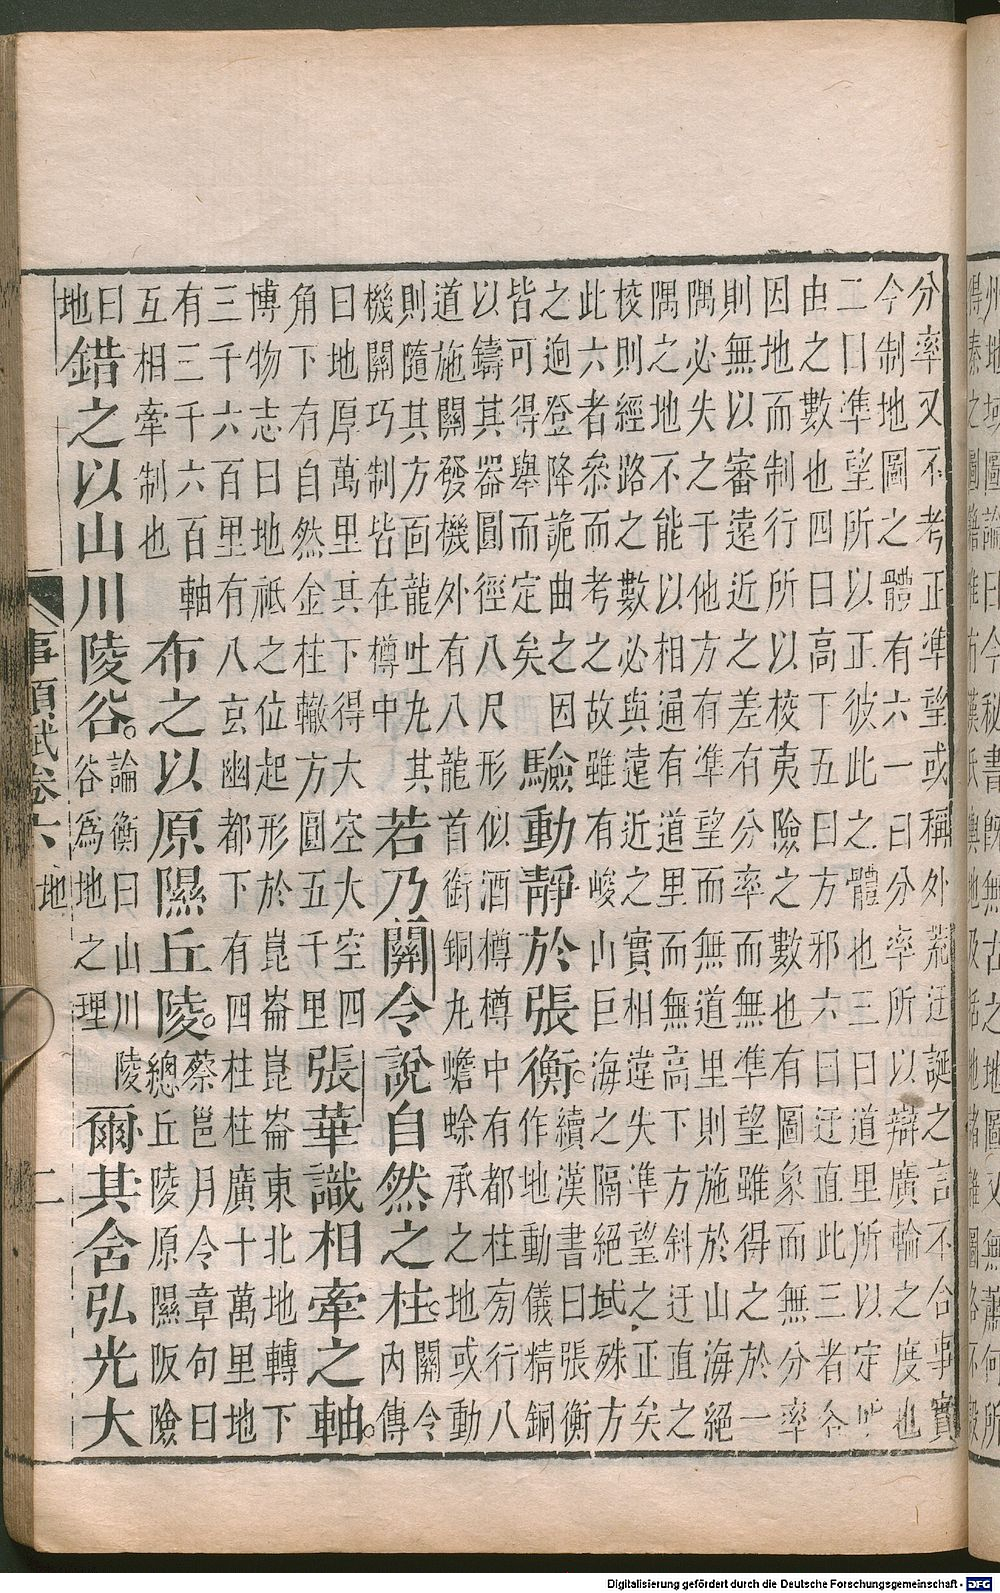 州地域圖論曰今秘書既無古之地圖又無蕭何所
得秦之圖籍惟有漢氏輿地及括地諸雜圖各不設
分率又不考正準望或稱外荒迂誕之言不合事實
今制地圖之體有六一曰分率所以辯廣輪之度也
二曰準望所以正彼此之體也三曰道里所以定所
由之數也四曰高下五曰方邪六曰迂直此三者各
因地而制行所以校夷險之數也有圖象而無分率
則無以審遠近之差有分率而無準望雖得之於一
隅必失之于他方有準望而無道里則施於山海絕
隅之地不能以相通有道里而無高下方斜迂直之
校則經路之數必與遠近之實相違失準望之正矣
此六者參而考之故雖有峻山巨海之隔絕域殊方
之迥登降詭曲之因
皆可得舉而定矣
驗動靜於張衡。
續漢書曰張衡
作地動儀精銅
以鑄其器圓徑八尺形似酒樽樽中有都柱旁行八
道施關發機外有八龍首銜銅丸蟾蜍承之地或動
則隨其方面龍吐丸其
機關巧制皆在樽中
若乃關令說自然之柱。
關令
內傳
曰地厚萬里其下得大空大空四
角下有自然金柱轍方圓五千里
張華識相牽之軸。
博物志曰地祇之位起形於崑崙崑崙東北地轉下
三千六百里有八玄幽都下有四柱柱廣十萬里地
有三千六百軸
互相牽制也
布之以原隰丘陵。
蔡邕月令章句曰
總丘陵原隰阪險
曰
地
錯之以山川陵谷。
論衡曰山川陵
谷為地之理
爾其含弘光大
事類賦卷六 地 二
Digitalisierung gefördert durch die Deutsche Forschungsgemeinschaft - DFG